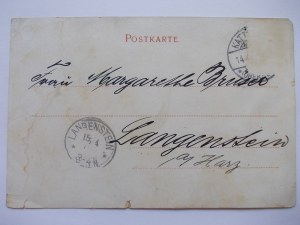 POSTKARTE.
Frau Margarethe
Langenstein
a/ Harz.
LANGENSTEIN
15 4
8-9 N.